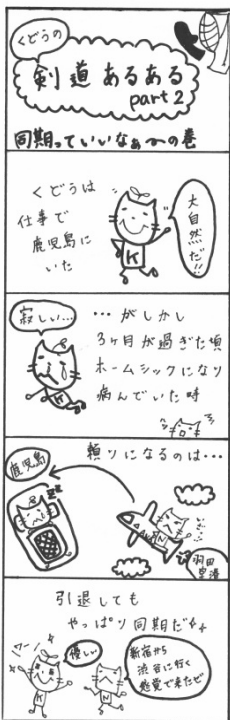 くどうの
剣道あるある
part2
同期っていいなぁ〜の巻
くどうは
仕事で
鹿児島に
いた
大自然だ!!
K
寂しい…
…がしかし
3ヶ月が過ぎた頃
ホームシックになり
病んでいた時
K
頼りになるのは…
鹿児島
ZZ
N
羽田
空港
引退しても
やっぱり同期だ
ワーン
優しい
新宿から
渋谷に行く
感覚で来たぜ
K
N